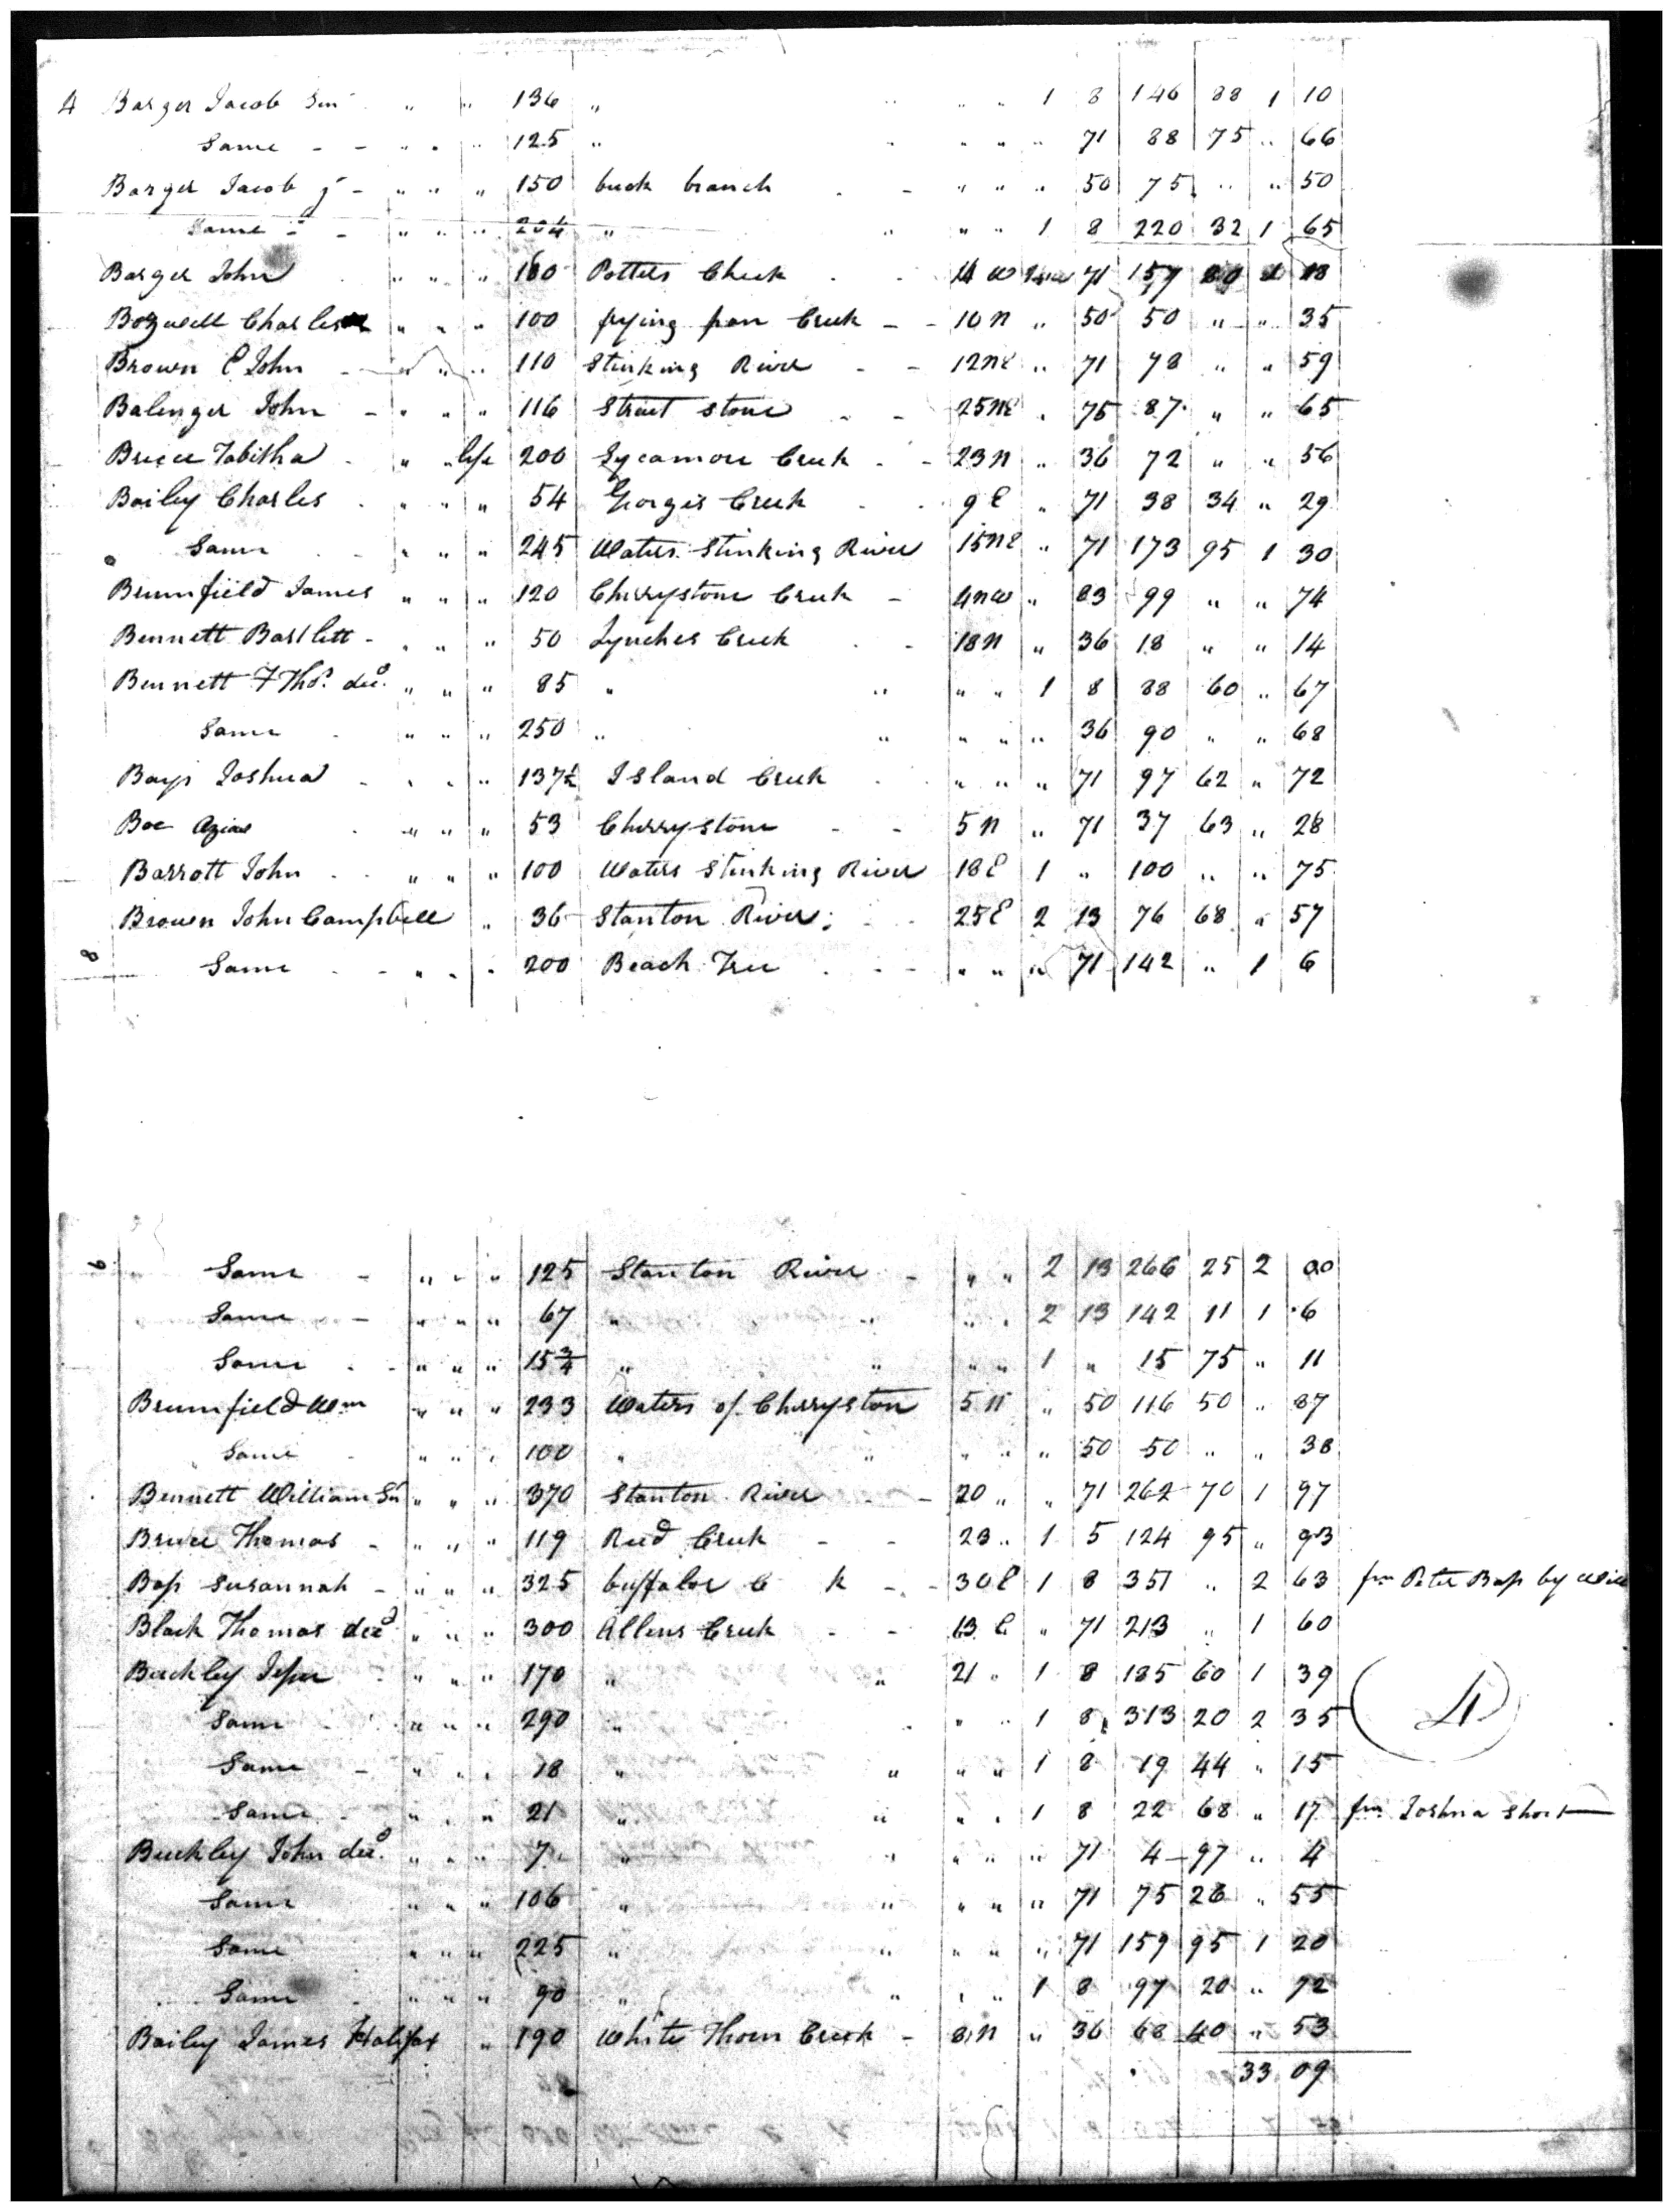 4 Barger Jacob Sen " " 136 " " " " 1 8 146 88 1 10
Same - - " " " 125 " " " " " 71 88 75 " 66
Barger Jacob jr - " " " 150 buck branch - " " " 50 75 " " 50
Same - - " " " 204 " " " " 1 8 220 32 1 65
Barger John " " " 160 Potters Creek - 71 157
Bozwell Charles " " " 100 frying pan Creek - - 10 N " 50 50 " " 35
Brown C John - " " " 110 Stinking River - - 12 NE " 71 78 " " 59
Balenger John - " " " 116 Strait stone - - 25 NE " 75 87 " " 65
Bruce Tabitha - " " life 200 Sycamore Creek - - 23 N " 36 72 " " 56
Bailey Charles - " " " 54 Georges Creek - 9 E " 71 38 34 " 29
Same - " " " 245 Waters Stinking River 15 NE " 71 173 95 1 30
Brumfield James " " " 120 Cherrystone Creek - 4 NW " 83 99 " " 74
Bennett Bartlett - " " " 50 Lynches Creek - - 18 N " 36 18 " " 14
Bennett F Thos. decd. " " " 85 " " " " 1 8 88 60 " 67
Same - " " " 250 " " " " " 36 90 " " 68
Bays Joshua - " " " 137½ Island Creek - " " " 71 97 62 " 72
Boe " " " 53 Cherrystone - - 5 N " 71 37 63 " 28
Barrott John - - " " " 100 Waters Stinking River 18 E 1 " 100 " " 75
Brown John Campbell " 36 Stanton River - - 25 E 2 13 76 68 " 57
8 Same - - " " " 200 Beach Tree - - - " " " 71 142 " 1 6
Same - " " " 125 Stanton River - " " 2 13 266 25 2 00
Same - " " " 67 " " " " 2 13 142 11 1 6
Same - - " " " 15¾ " " " " 1 " 15 75 " 11
Brumfield Wm " " " 233 Waters of Cherryston 5 N " 50 116 50 " 87
Same - " " " 100 " " " " " 50 50 " " 38
Bennett William Sr " " " 370 Stanton River - - 20 " " 71 262 70 1 97
Bruce Thomas - " " " 119 Reed Creek - - 23 " 1 5 124 95 " 93
Bass Susannah - " " " 325 buffaloe C k - - 30 E 1 8 351 " 2 63 from Peter Bass by Will
Black Thomas decd " " " 300 Allens Creek - - 13 E " 71 213 " 1 60
Buckley Jesse - " " " 170 " " 21 " 1 8 185 60 1 39
Same - " " " 290 " " " " 1 8 313 20 2 35 4
Same - " " " 18 " " " " 1 8 19 44 " 15
Same - " " " 21 " " " " 1 8 22 68 " 17 from Joshua Short
Buckley John decd. " " " 7 " " " " " 71 4 97 " 4
Same " " " 106 " " " " " 71 75 26 " 55
Same " " " 225 " " " " " 71 159 95 1 20
Same - " " " 90 " " " " 1 8 97 20 " 72
Bailey James Halifax " 190 White Thorn Creek - 8 N " 36 68 40 " 53
33 09